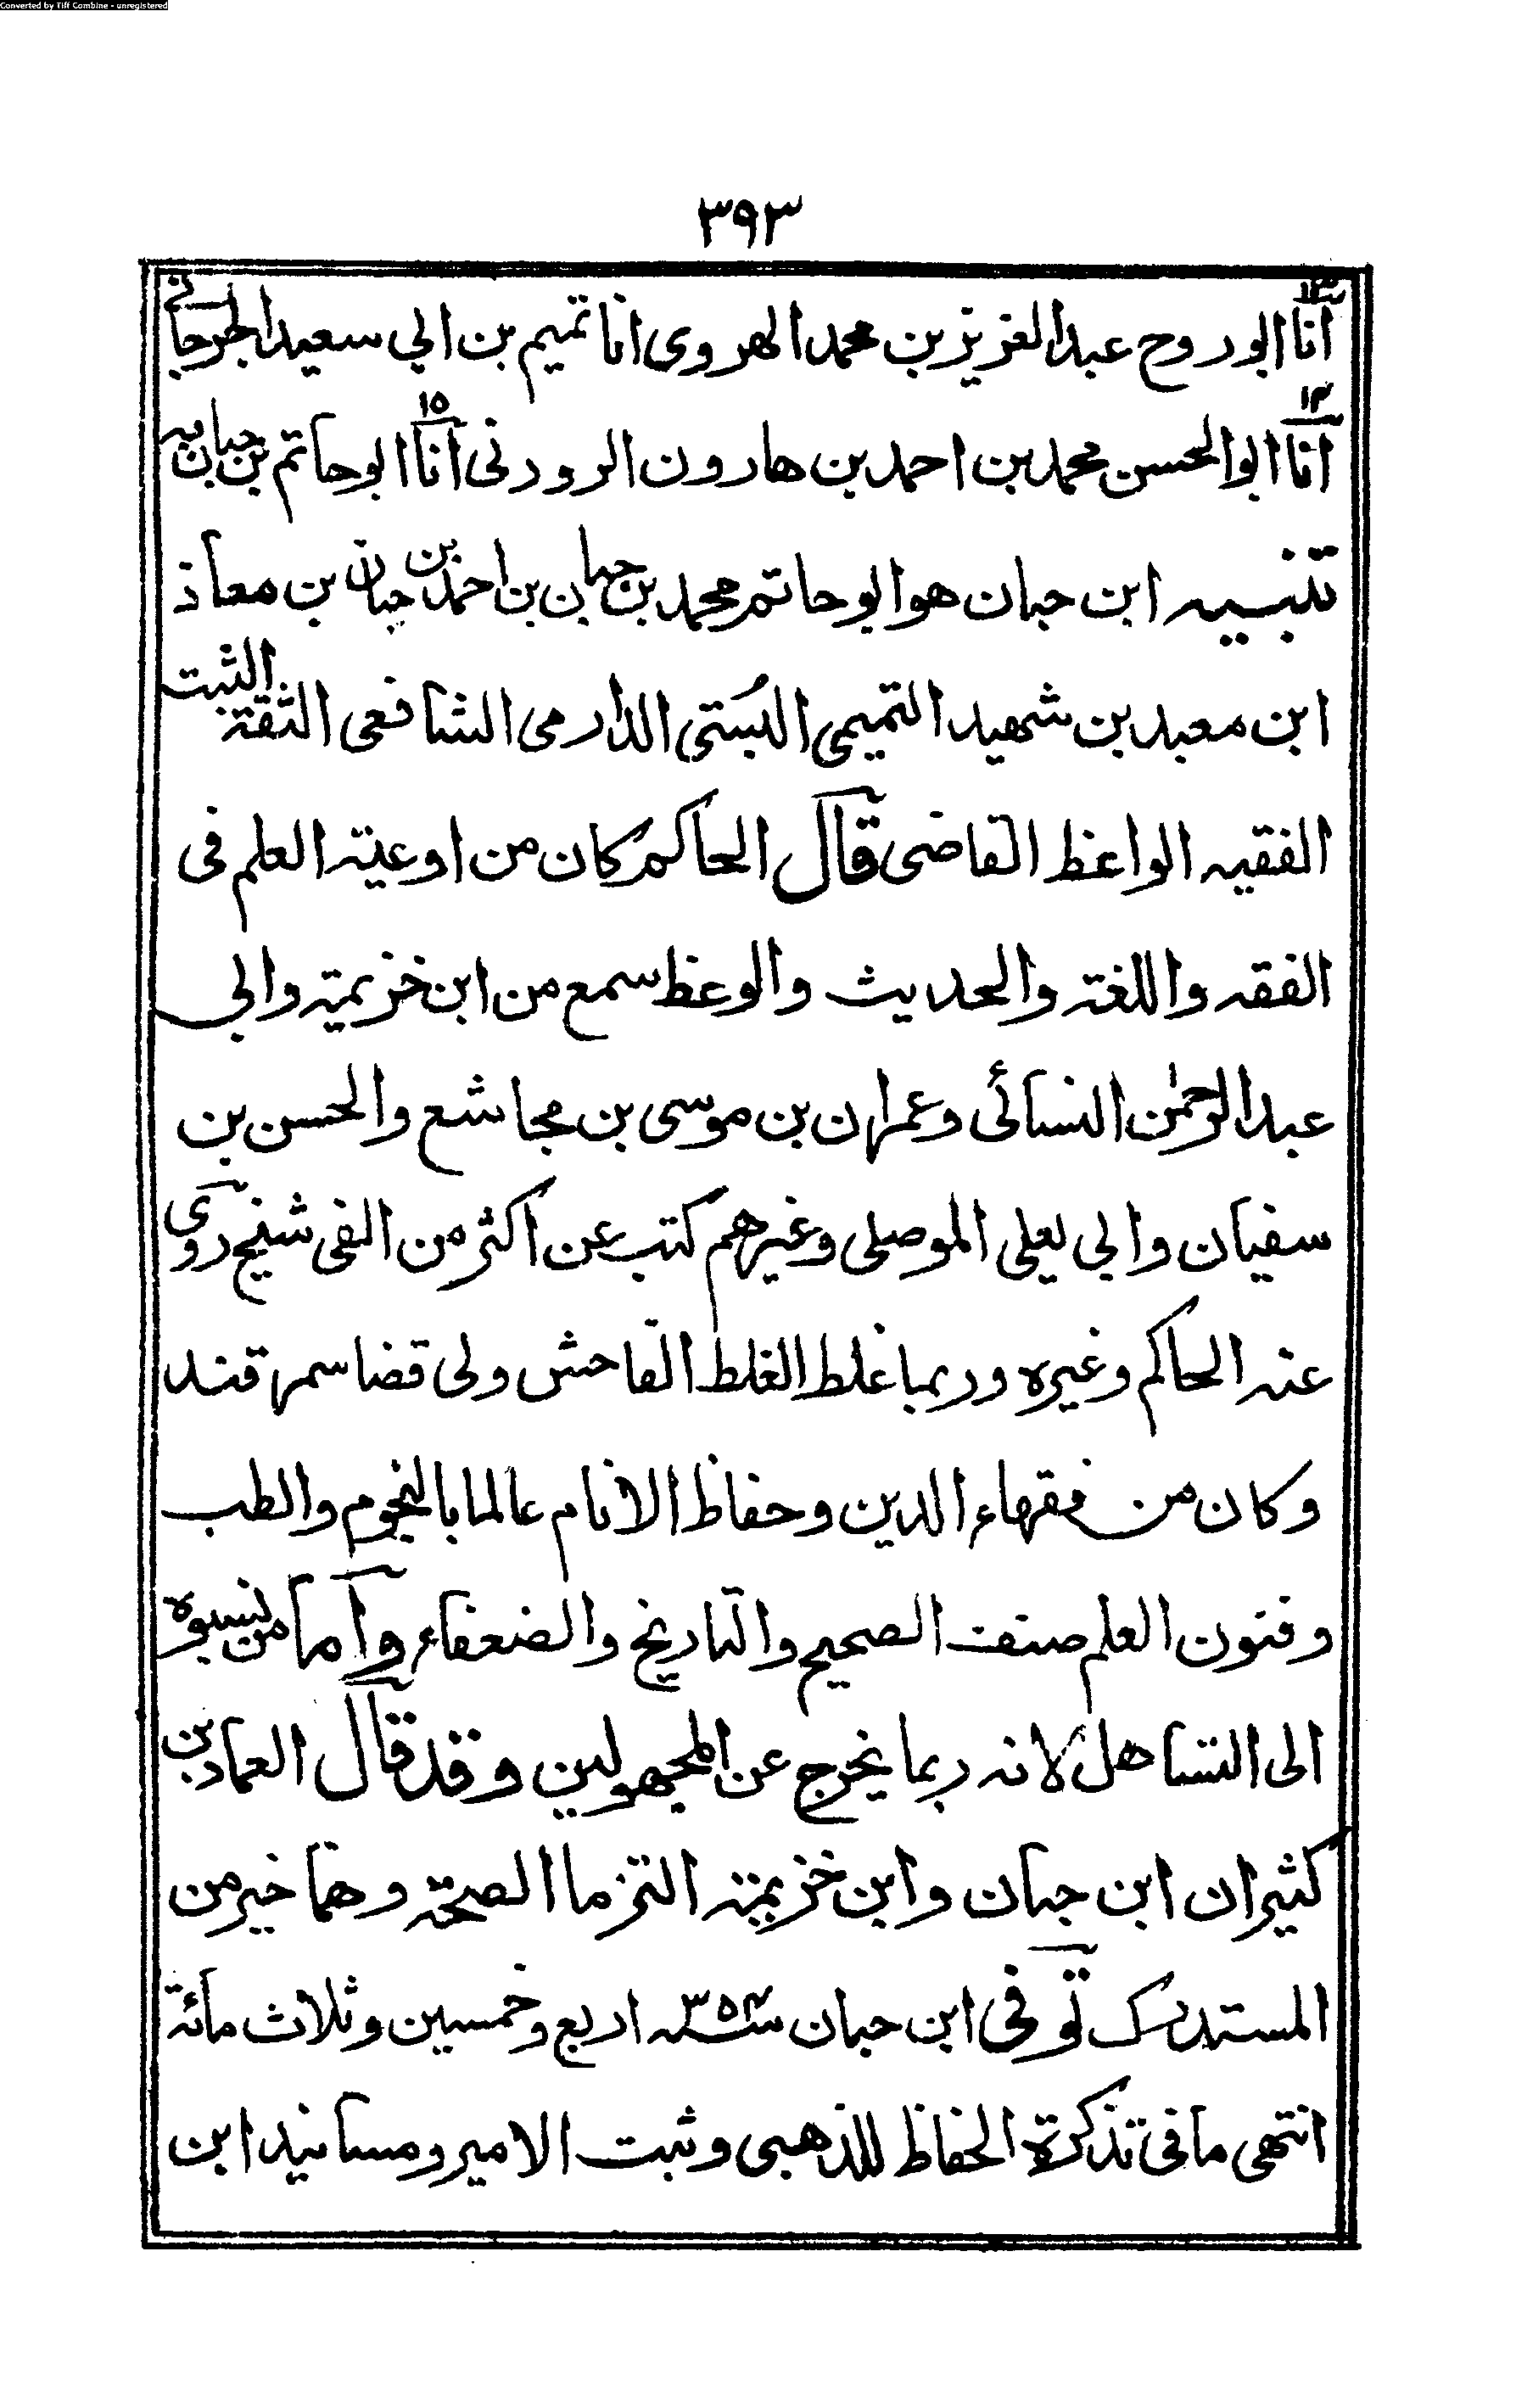 Converted by Tiff Combine - unregistered
٣٩٣
١٣
انا ابو روح عبد العزيز بن محمد الهروى انا تميم بن ابي سعيد الجرجاني
١٤ ١٥
انا ابو الحسن محمد بن احمد بن هارون الرودنى انا ابو حاتم بن حبان به
تنبيه ابن حبان هو ابو حاتم محمد بن حبان بن احمد بن حبان بن معاذ
ابن معبد بن شهيد التميمى البُستى الدارمى الشافعى الثقة الثبت
الفقيه الواعظ القاضى قال الحاكم كان من اوعية العلم فى
الفقه واللغة والحديث والوعظ سمع من ابن خزيمة وابي
عبد الرحمٰن النسائى وعمران بن موسى بن مجاشع والحسن بن
سفيان وابي يعلى الموصلى وغيرهم كتب عن اكثر من الفى شيخ روى
عنه الحاكم وغيره وربما غلط الغلط الفاحش ولى قضا سمرقند
وكان من فقهاء الدين وحفاظ الانام عالما بالنجوم والطب
وفنون العلم صنف الصحيح والتاريخ والضعفاء واما من نسبوه
الى التساهل لانه ربما يخرج عن المجهولين وقد قال العماد بن
كثير ان ابن حبان وابن خزيمة التزما الصحة وهما خير من
المستدرك توفى ابن حبان سنه ٣٥٤ اربع وخمسين وثلاث مائة
انتهى ما فى تذكرة الحفاظ للذهبى وثبت الامير ومسانيد ابن